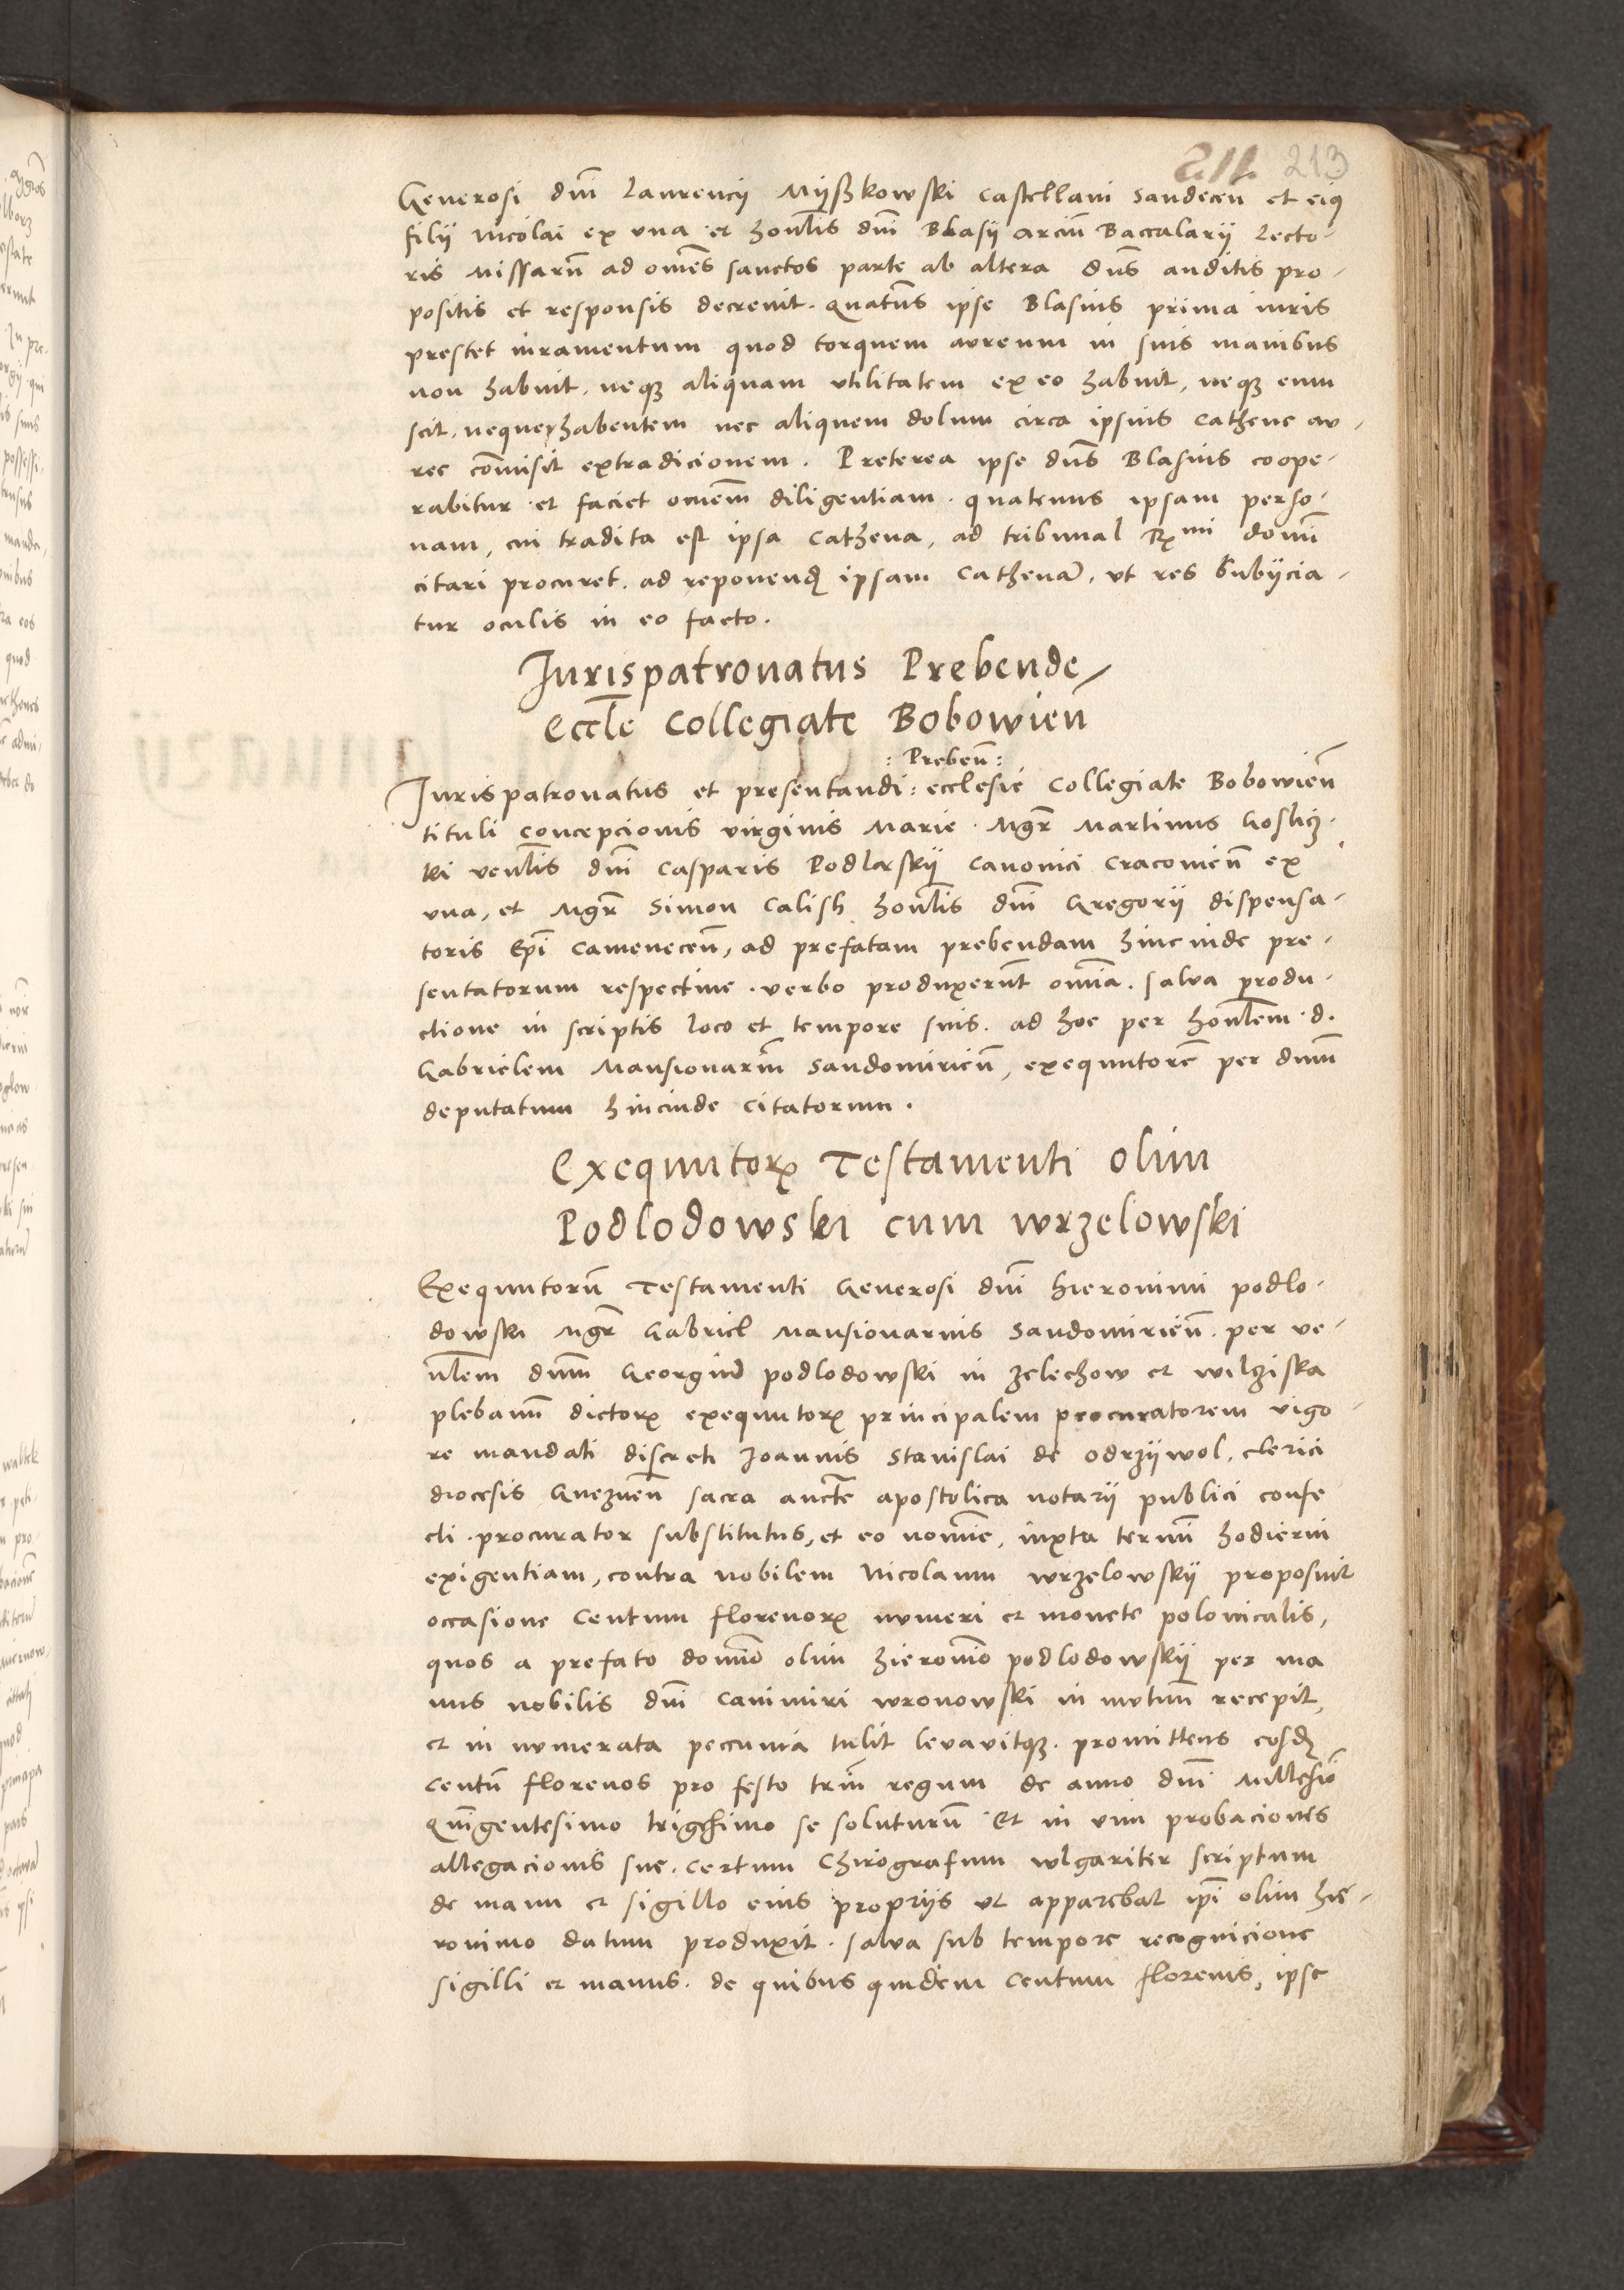 211. 213
Generosi dnī Laurencij Mijßkowski Castellani Sandecen et eiꝰ
filij Nicolai ex una et honlis dnī Blasij arciū Baccalarij Lecto-
ris Missarū ad omēs sanctos parte ab altera dns auditis pro-
positis et responsis decrevit. quatens ipse Blasius prima iuris
prestet iuramentum quod torquem aureum in suis manibus
non habuit, neqꝫ aliquam utilitatem ex eo habuit, neqꝫ eum
scit, neque habentem nec aliquem dolum circa ipsius Cathene au-
ree cōmisit extradicionem. Preterea ipse dns Blasius coope-
rabitur et faciet omnem diligentiam. quatenus ipsam perso-
nam, cui tradita est ipsa Cathena, ad tribunal Rmi domī
citari procuret. ad reponendꝫ ipsam Cathenā, ut res subijcia-
tur oculis in eo facto.
Iurispatronatus Prebende
Eccle Collegiate Bobowien̄
: Preben̄ :
Iurispatronatus et presentandi : ecclesie Collegiate Bobowien̄
tituli concepcionis virginis Marie. Mgr̄ Martinus Goslicz-
ki venlis dnī Casparis Podlaskij Canonici Cracovien̄ ex
una, et Mgr̄ Simon Calish honlis dnī Gregorij dispensa-
toris Epī Camenecen̄, ad prefatam prebendam hincinde pre-
sentatorum respective. verbo produxerūt omnia. salva produ-
ctione in scriptis loco et tempore suis. ad hoc per honlem d.
Gabrielem Mansionariū Sandomirien̄, exequutorē per dnm
deputatum hincinde citatorum.
Exequutorꝝ Testamenti olim
Podlodowski cum wrzelowski
Exequutorū Testamenti Generosi dnī Hieronimi podlo-
dowski Mgr̄ Gabriel Mansionarius Sandomirien̄. per ve-
nlem dnm Georgiū podlodowski in zelechow et wilziska
plebanū dictorꝝ exequutorꝝ principalem procuratorem vigo-
re mandati discreti Joannis Stanislai de odrzijwol, clerici
diocesis Gneznen̄ sacra aucte apostolica notarij publici confe
cti. procurator substitutus, et eo nomīe, iuxta termī hodierni
exigentiam, contra nobilem Nicolaum wrzelowskij proposuit
occasione Centum florenorꝝ numeri et monete polonicalis,
quos a prefato domino olim hieronīo podlodowskij per ma
nus nobilis dnī Canimiri wronowski in mutuū recepit,
et in numerata peccunia tulit levavitqꝫ. promittens eosdꝫ
Centū florenos pro festo triū regum de anno dnī Millesīo
Quīgentesimo trigesimo se soluturū. Et in vim probaciones
allegacionis sue. certum Chirografum wlgariter scriptum
de manu et sigillo eius proprijs ut apparebat ipī olim hie-
ronimo datum produxit. salva sub tempore recognicione
sigilli et manus. de quibus quidem Centum florenis, ipse